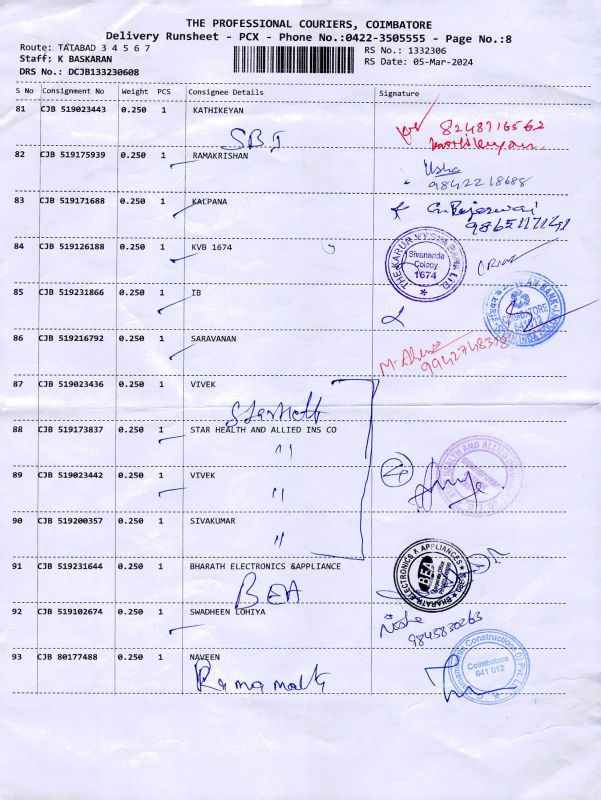 THE PROFESSIONAL COURIERS, COIMBATORE
Delivery Runsheet - PCX - Phone No.:0422-3505555 - Page No.:8
Route: TATABAD 3 4 5 6 7
RS No.: 1332306
Staff: K BASKARAN
RS Date: 05-Mar-2024
DRS No.: DCJB133230608
S No Consignment No Weight PCS Consignee Details Signature
81 CJB 519023443 0.250 1 KATHIKEYAN
SBI
8248716562
82 CJB 519175939 0.250 1 RAMAKRISHAN
Usha
9842218688
83 CJB 519171688 0.250 1 KALPANA
84 CJB 519126188 0.250 1 KVB 1674
THE KARUR VYSYA BANK LTD
Sivananda
Colony
1674
85 CJB 519231866 0.250 1 IB
COIMBATORE
641 012
86 CJB 519216792 0.250 1 SARAVANAN
87 CJB 519023436 0.250 1 VIVEK
88 CJB 519173837 0.250 1 STAR HEALTH AND ALLIED INS CO
"
89 CJB 519023442 0.250 1 VIVEK
"
90 CJB 519200357 0.250 1 SIVAKUMAR
"
91 CJB 519231644 0.250 1 BHARATH ELECTRONICS &APPLIANCE
BHARATH ELECTRONICS & APPLIANCES
BEA
BEA
92 CJB 519102674 0.250 1 SWADHEEN LOHIYA
Nisha
9845830263
93 CJB 80177488 0.250 1 NAVEEN
Coimbatore
641 012